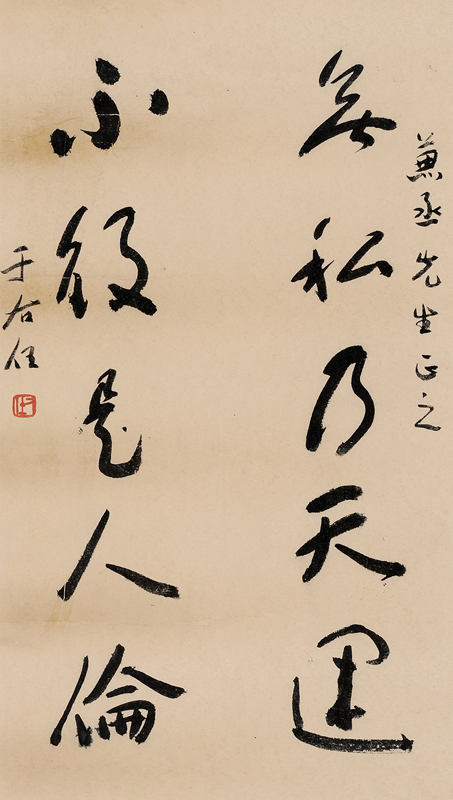 兼丞先生正之
無私乃天運
不役是人倫
于右任